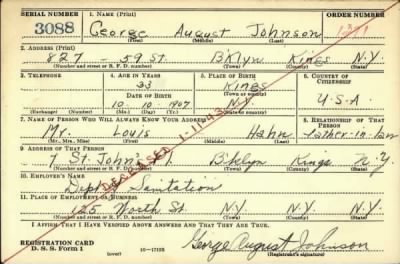 SERIAL NUMBER 1. NAME (Print) ORDER NUMBER
3088 George August Johnson
(First) (Middle) (Last)
2. ADDRESS (Print)
827 - 59 St. B'klyn Kings N.Y.
(Number and street or R. F. D. number) (Town) (County) (State)
3. TELEPHONE 4. AGE IN YEARS 5. PLACE OF BIRTH 6. COUNTRY OF CITIZENSHIP
33 Kings
DATE OF BIRTH (Town or county)
10-10-1907 N.Y. U.S.A
(Exchange) (Number) (Mo.) (Day) (Yr.) (State or country)
7. NAME OF PERSON WHO WILL ALWAYS KNOW YOUR ADDRESS 8. RELATIONSHIP OF THAT PERSON
Mr. Louis Hahn Father-in-law
(Mr., Mrs., Miss) (First) (Middle) (Last)
9. ADDRESS OF THAT PERSON
7 St. John's Pl. B'klyn Kings N.Y.
(Number and street or R. F. D. number) (Town) (County) (State)
DECEASED 1-11-43
10. EMPLOYER'S NAME
Dept of Sanitation
11. PLACE OF EMPLOYMENT OR BUSINESS
125 Worth St. N.Y. N.Y. N.Y.
(Number and street or R. F. D. number) (Town) (County) (State)
I AFFIRM THAT I HAVE VERIFIED ABOVE ANSWERS AND THAT THEY ARE TRUE.
REGISTRATION CARD George August Johnson
D. S. S. Form 1 (over) (Registrant's signature)